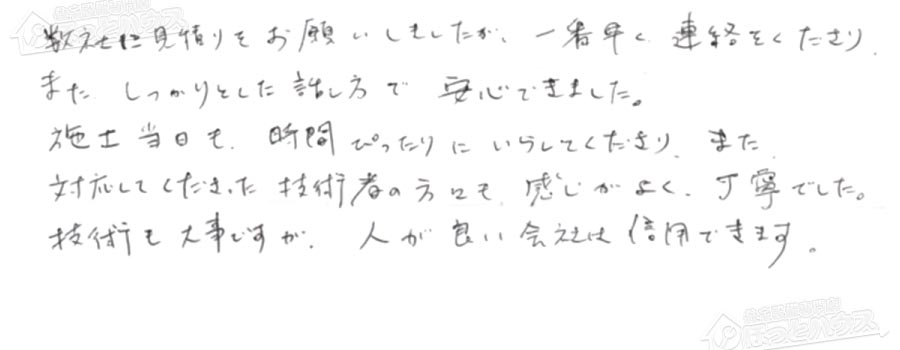 数社に見積りをお願いしましたが、一番早く連絡をくださり、
また、しっかりとした話し方で安心できました。
施工当日も、時間ぴったりにいらしてくださり、また
対応してくださった技術者の方々も、感じがよく、丁寧でした。
技術も大事ですが、人が良い会社は信用できます。
ほっとハウス
ほっとハウス